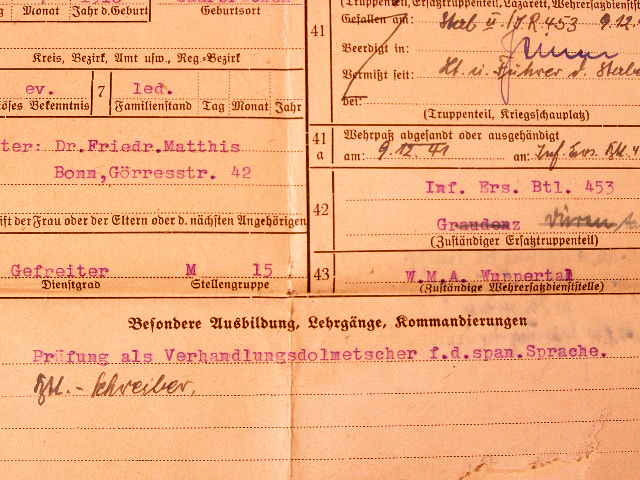 (Truppenteil, Ersatztruppenteil, Lazarett, Wehrersatzdienst
1918
Monat Jahr d. Geburt
Geburtsort
41
Gefallen am: Stab II./J.R. 453 9.12.
Beerdigt in:
Kreis, Bezirk, Amt usw., Reg.-Bezirk
Vermißt seit: Lt. u. Führer d.
bei:
(Truppenteil, Kriegsschauplatz)
ev. 7 led.
öses Bekenntnis Familienstand Tag Monat Jahr
41 a
Wehrpaß abgesandt oder ausgehändigt
am: 9.12.41 an: Inf. Ers. Btl. 4
ter: Dr.Friedr.Matthis
Bonn,Görresstr. 42
42
Inf. Ers. Btl. 453
Graudenz Düren
(Zuständiger Ersatztruppenteil)
ift der Frau oder der Eltern oder d. nächsten Angehörigen
Gefreiter M 15
Dienstgrad Stellengruppe
43
W.M.A. Wuppertal
(Zuständige Wehrersatzdienststelle)
Besondere Ausbildung, Lehrgänge, Kommandierungen
Prüfung als Verhandlungsdolmetscher f.d.span.Sprache.
Btl.-Schreiber.